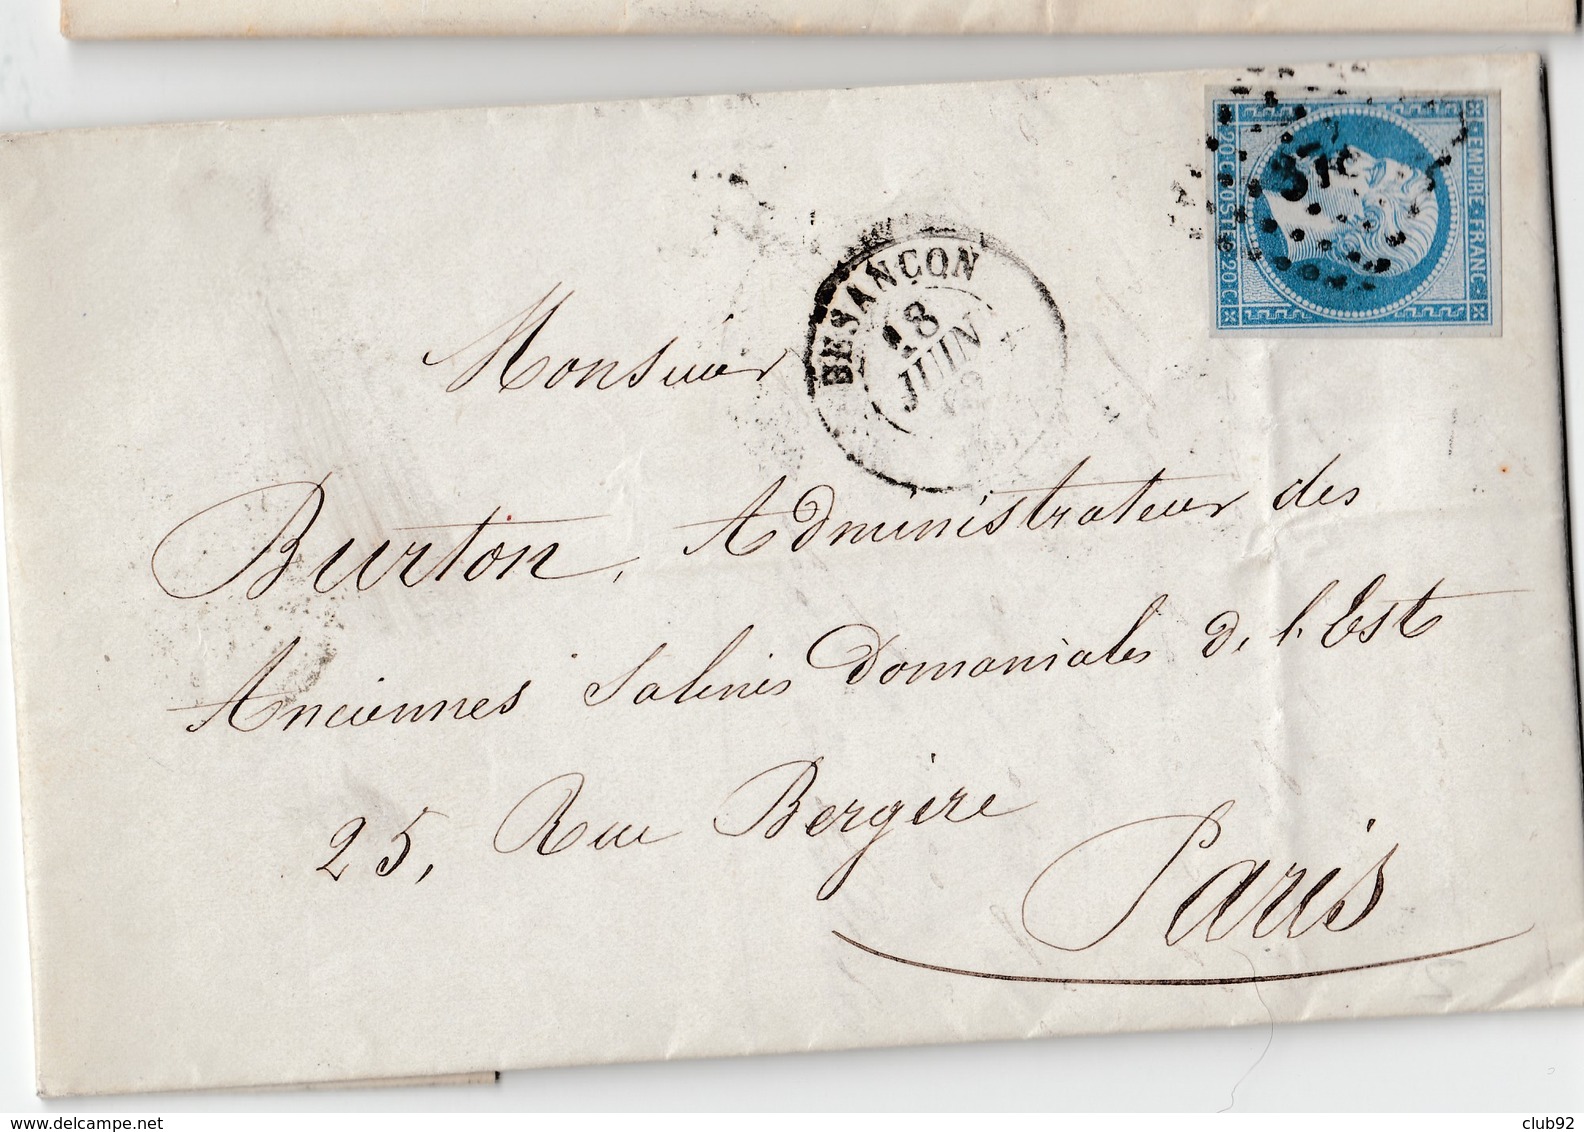 EMPIRE FRANC
20 C POSTES 20 C
378
BESANÇON
18
JUIN
Monsieur
Burton, Administrateur des
Anciennes Salines Domaniales de l'Est
25, Rue Bergère
Paris
www.delcampe.net
club92